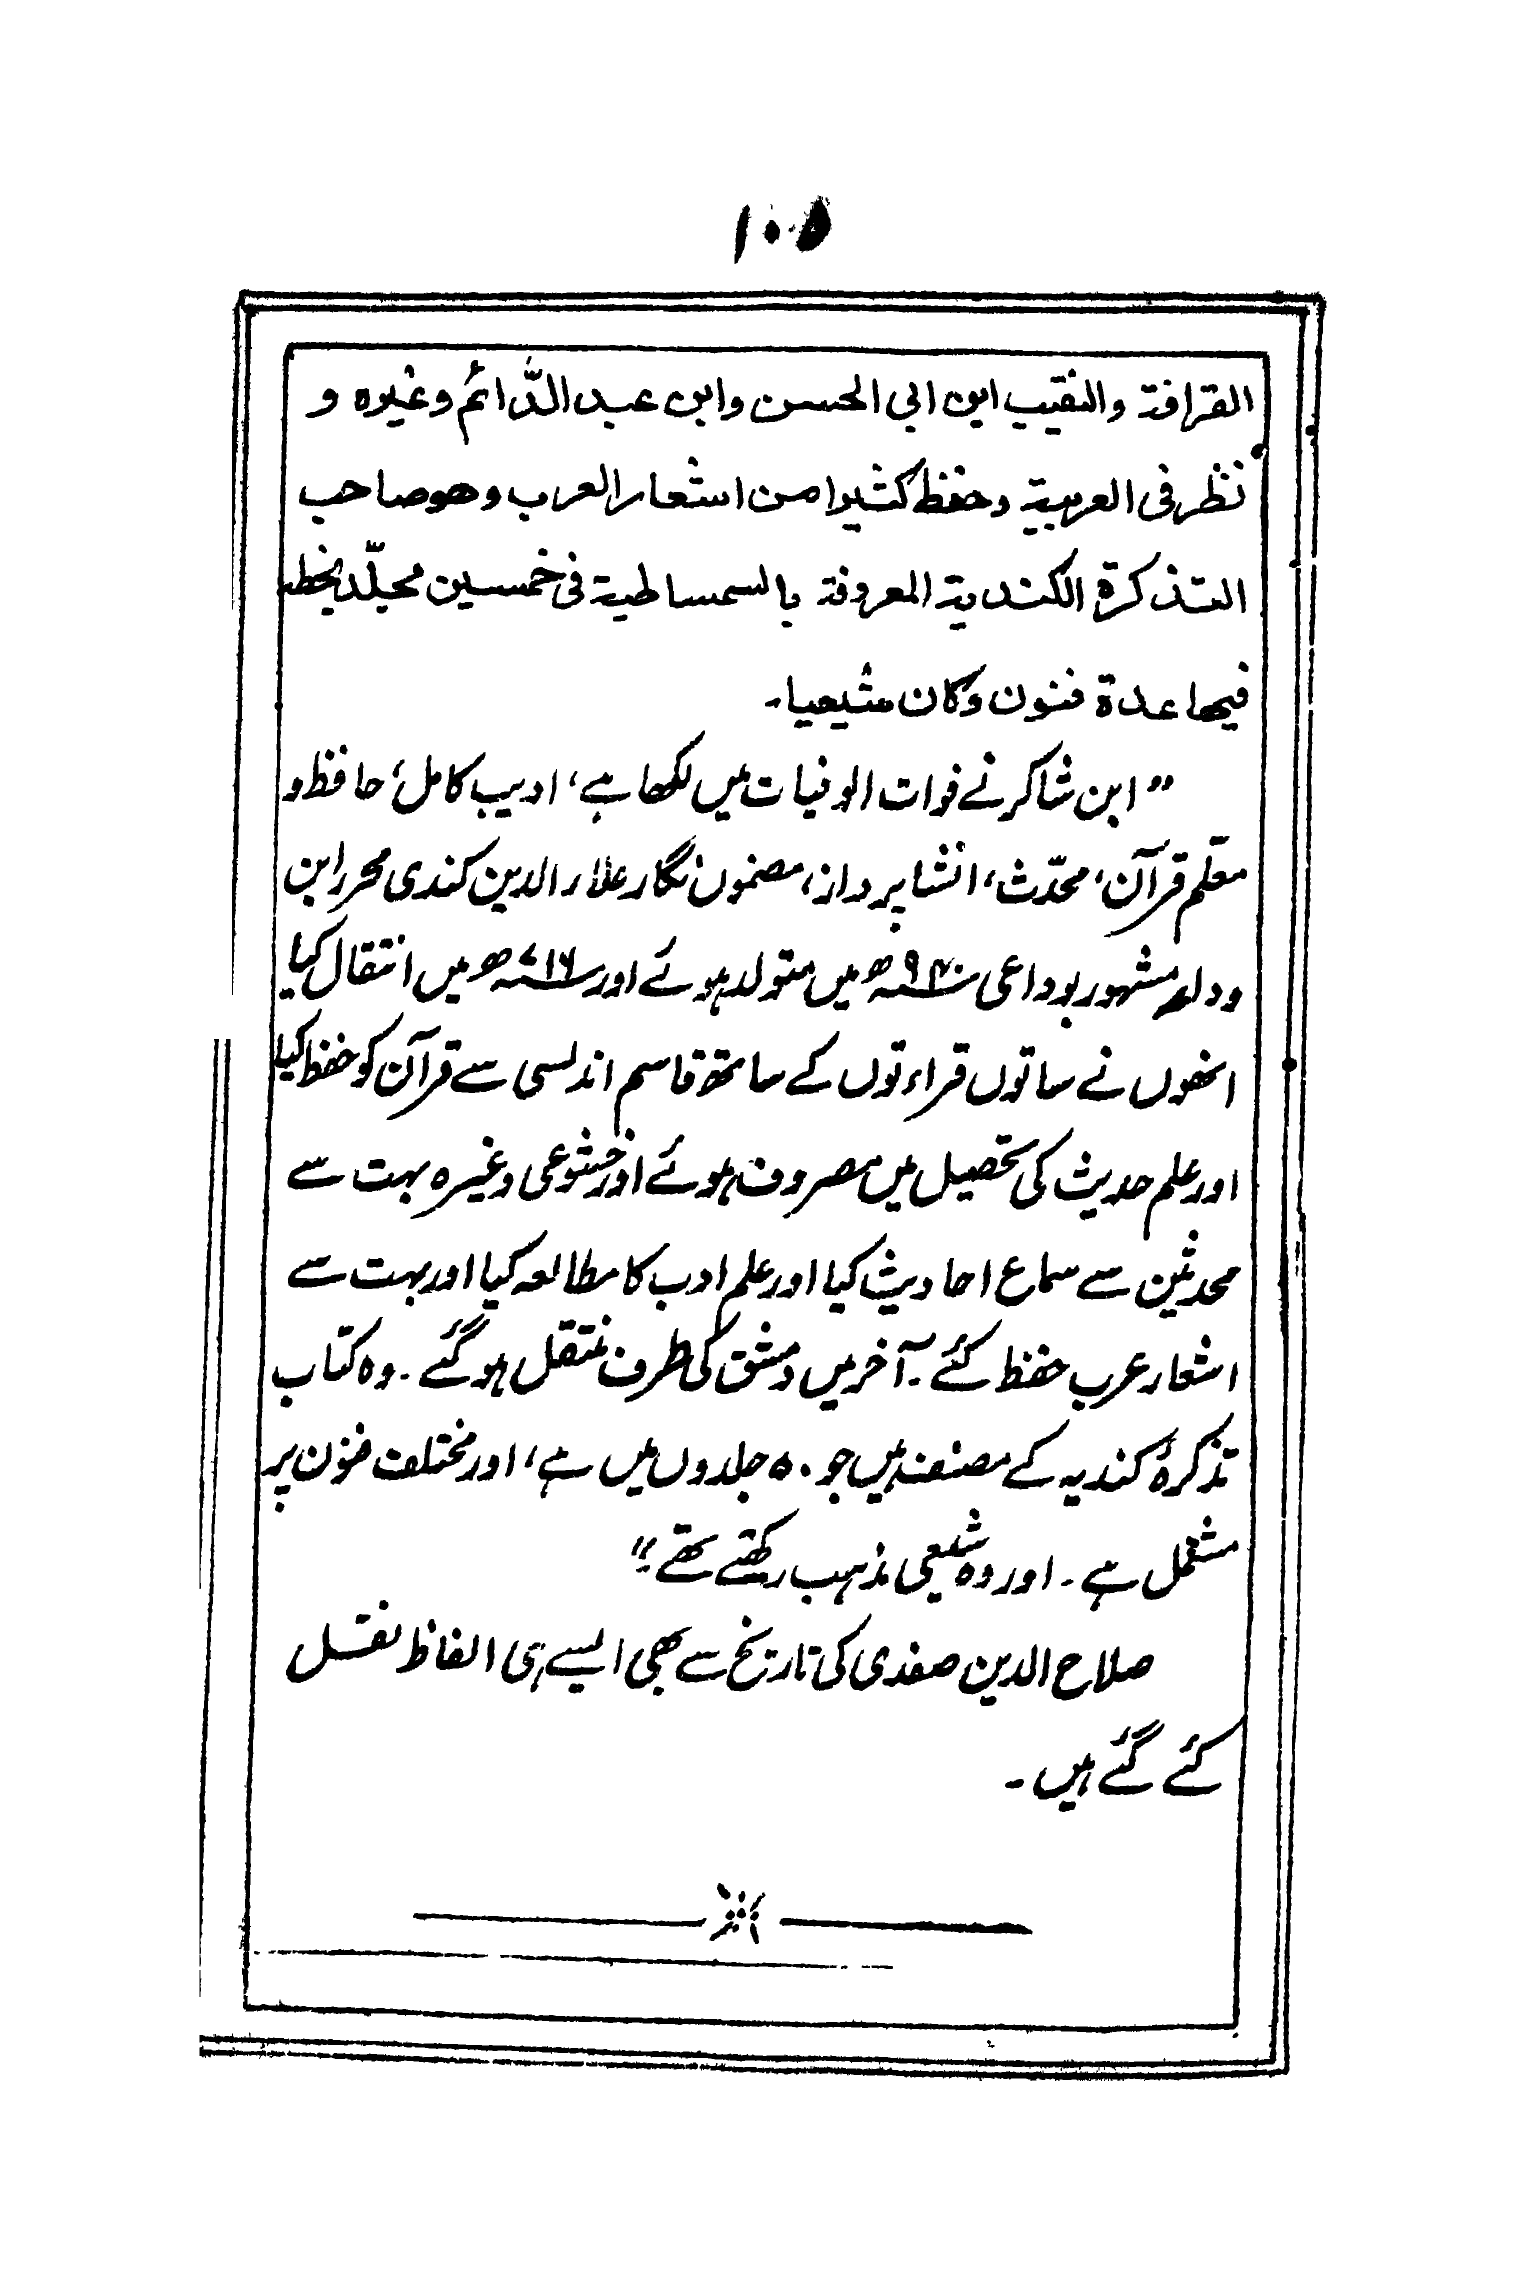 ۱۰۵
القرافة والنقیب ابن ابی الحسن وابن عبد الدّائم وغیره و
نظر فی العربیة وحفظ کثیرا من اشعار العرب وهو صاحب
التذکرة الکندیة المعروفة بالسمساطیة فی خمسین مجلّد بخطه
فیها عدة فنون وکان شیعیا۔
”ابن شاکر نے فوات الوفیات میں لکھا ہے، ادیب کامل، حافظ و
معلّم قرآن، محدّث، انشا پرداز، مضمون نگار علاء الدین کندی محرر ابن
وداعہ مشہور بوداعی ۹۴۰ھ میں متولد ہوئے اور ۷۱۶ھ میں انتقال کیا
انھوں نے ساتوں قراءتوں کے ساتھ قاسم اندلسی سے قرآن کو حفظ کیا
اور علم حدیث کی تحصیل میں مصروف ہوئے اور خشوعی وغیرہ بہت سے
محدثین سے سماع احادیث کیا اور علم ادب کا مطالعہ کیا اور بہت سے
اشعار عرب حفظ کئے۔ آخر میں دمشق کی طرف منتقل ہو گئے۔ وہ کتاب
تذکرۂ کندیہ کے مصنف ہیں جو ۵۰ جلدوں میں ہے، اور مختلف فنون پر
مشتمل ہے۔ اور وہ شیعی مذہب رکھتے تھے۔“
صلاح الدین صفدی کی تاریخ سے بھی ایسے ہی الفاظ نقل
کئے گئے ہیں۔